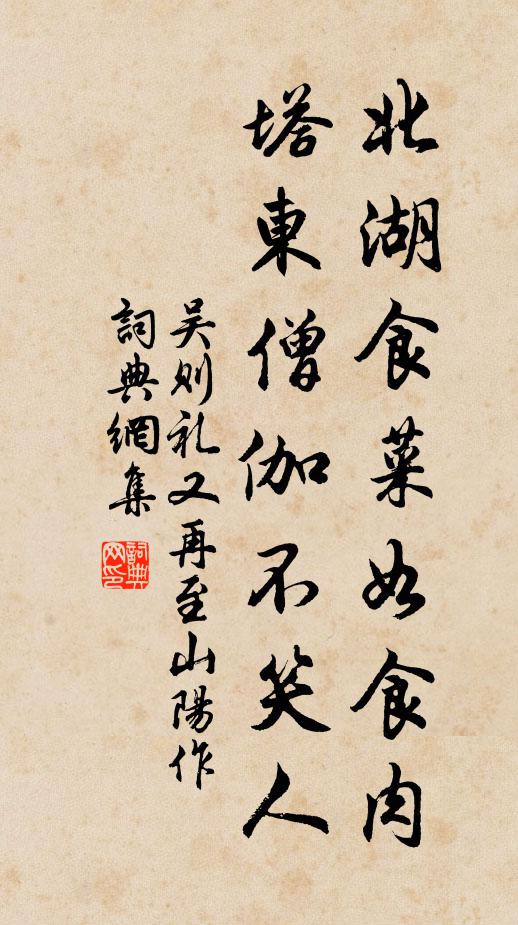 北湖食菜如食肉
塔東僧伽不笑人
吴则礼又再至山陽作
詞典網集
詞典网印